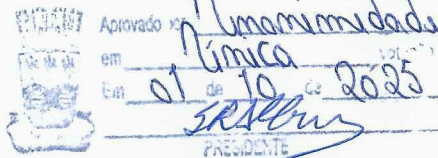 Aprovado por Unanimidade
em Única
Em 01 de 10 de 2025
PRESIDENTE